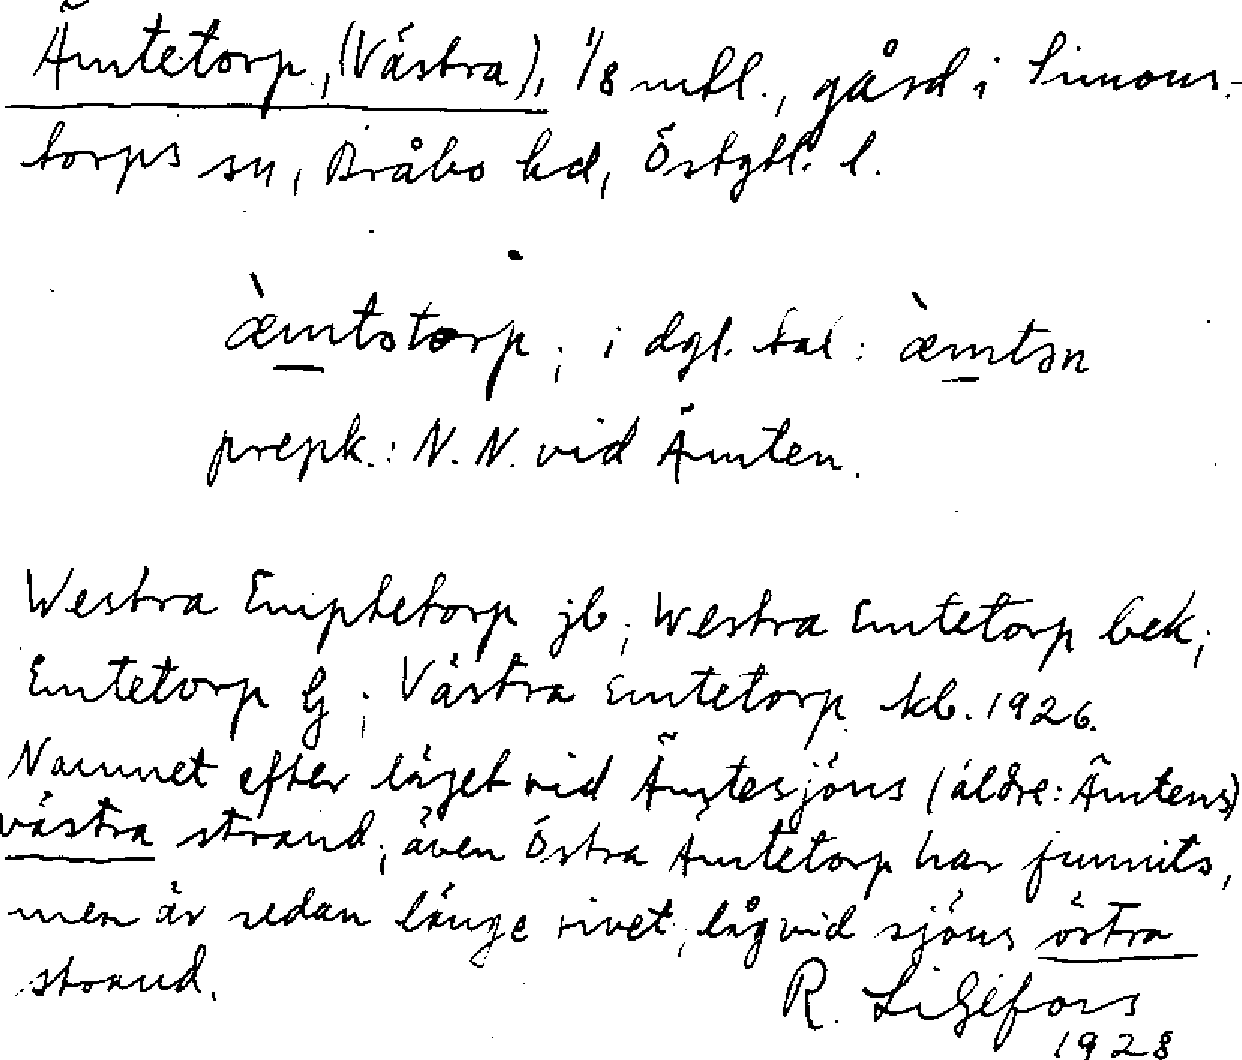 Ämtetorp, (Västra), 1/8 mtl., gård i Simons-
torps sn, Bråbo hd, Östgtl. l.
æ̀mtətorp; i dgl. tal: æ̀mtən
prepk.: N. N. vid Ämten.
Westra Emptetorp jb; Westra Emtetorp bek;
Emtetorp G; Västra Emtetorp kb. 1926.
Namnet efter läget vid Ämtesjöns (äldre: Ämtens)
västra strand; även Östra Ämtetorp har funnits,
men är sedan länge rivet; låg vid sjöns östra
strand.
R. Liljefors
1928